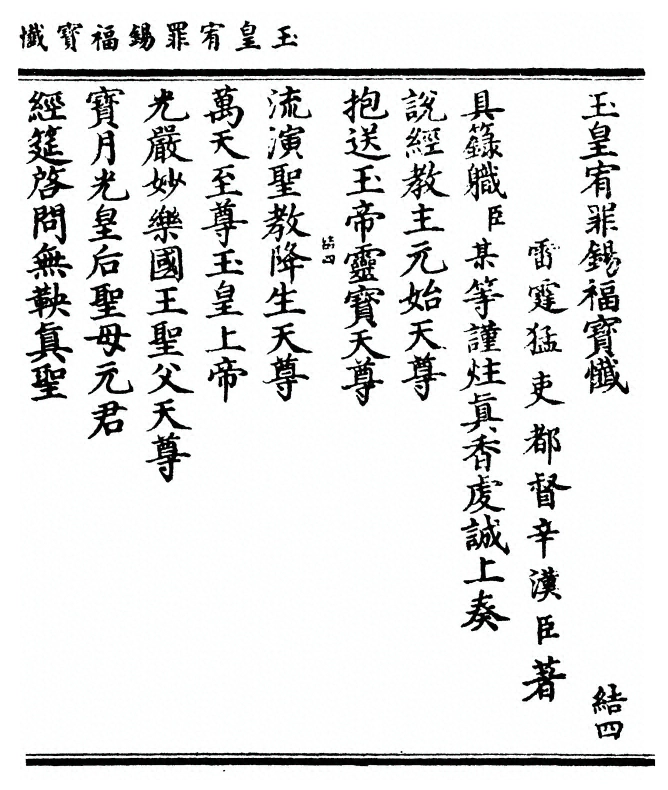 玉皇宥罪錫福寶懺
玉皇宥罪錫福寶懺 結四
雷霆猛吏都督辛漢臣著
具籙職臣某等謹炷眞香虔誠上奏
說經教主元始天尊
結四
抱送玉帝靈寶天尊
流演聖教降生天尊
萬天至尊玉皇上帝
光嚴妙樂國王聖父天尊
寶月光皇后聖母元君
經筵啓問無鞅眞聖